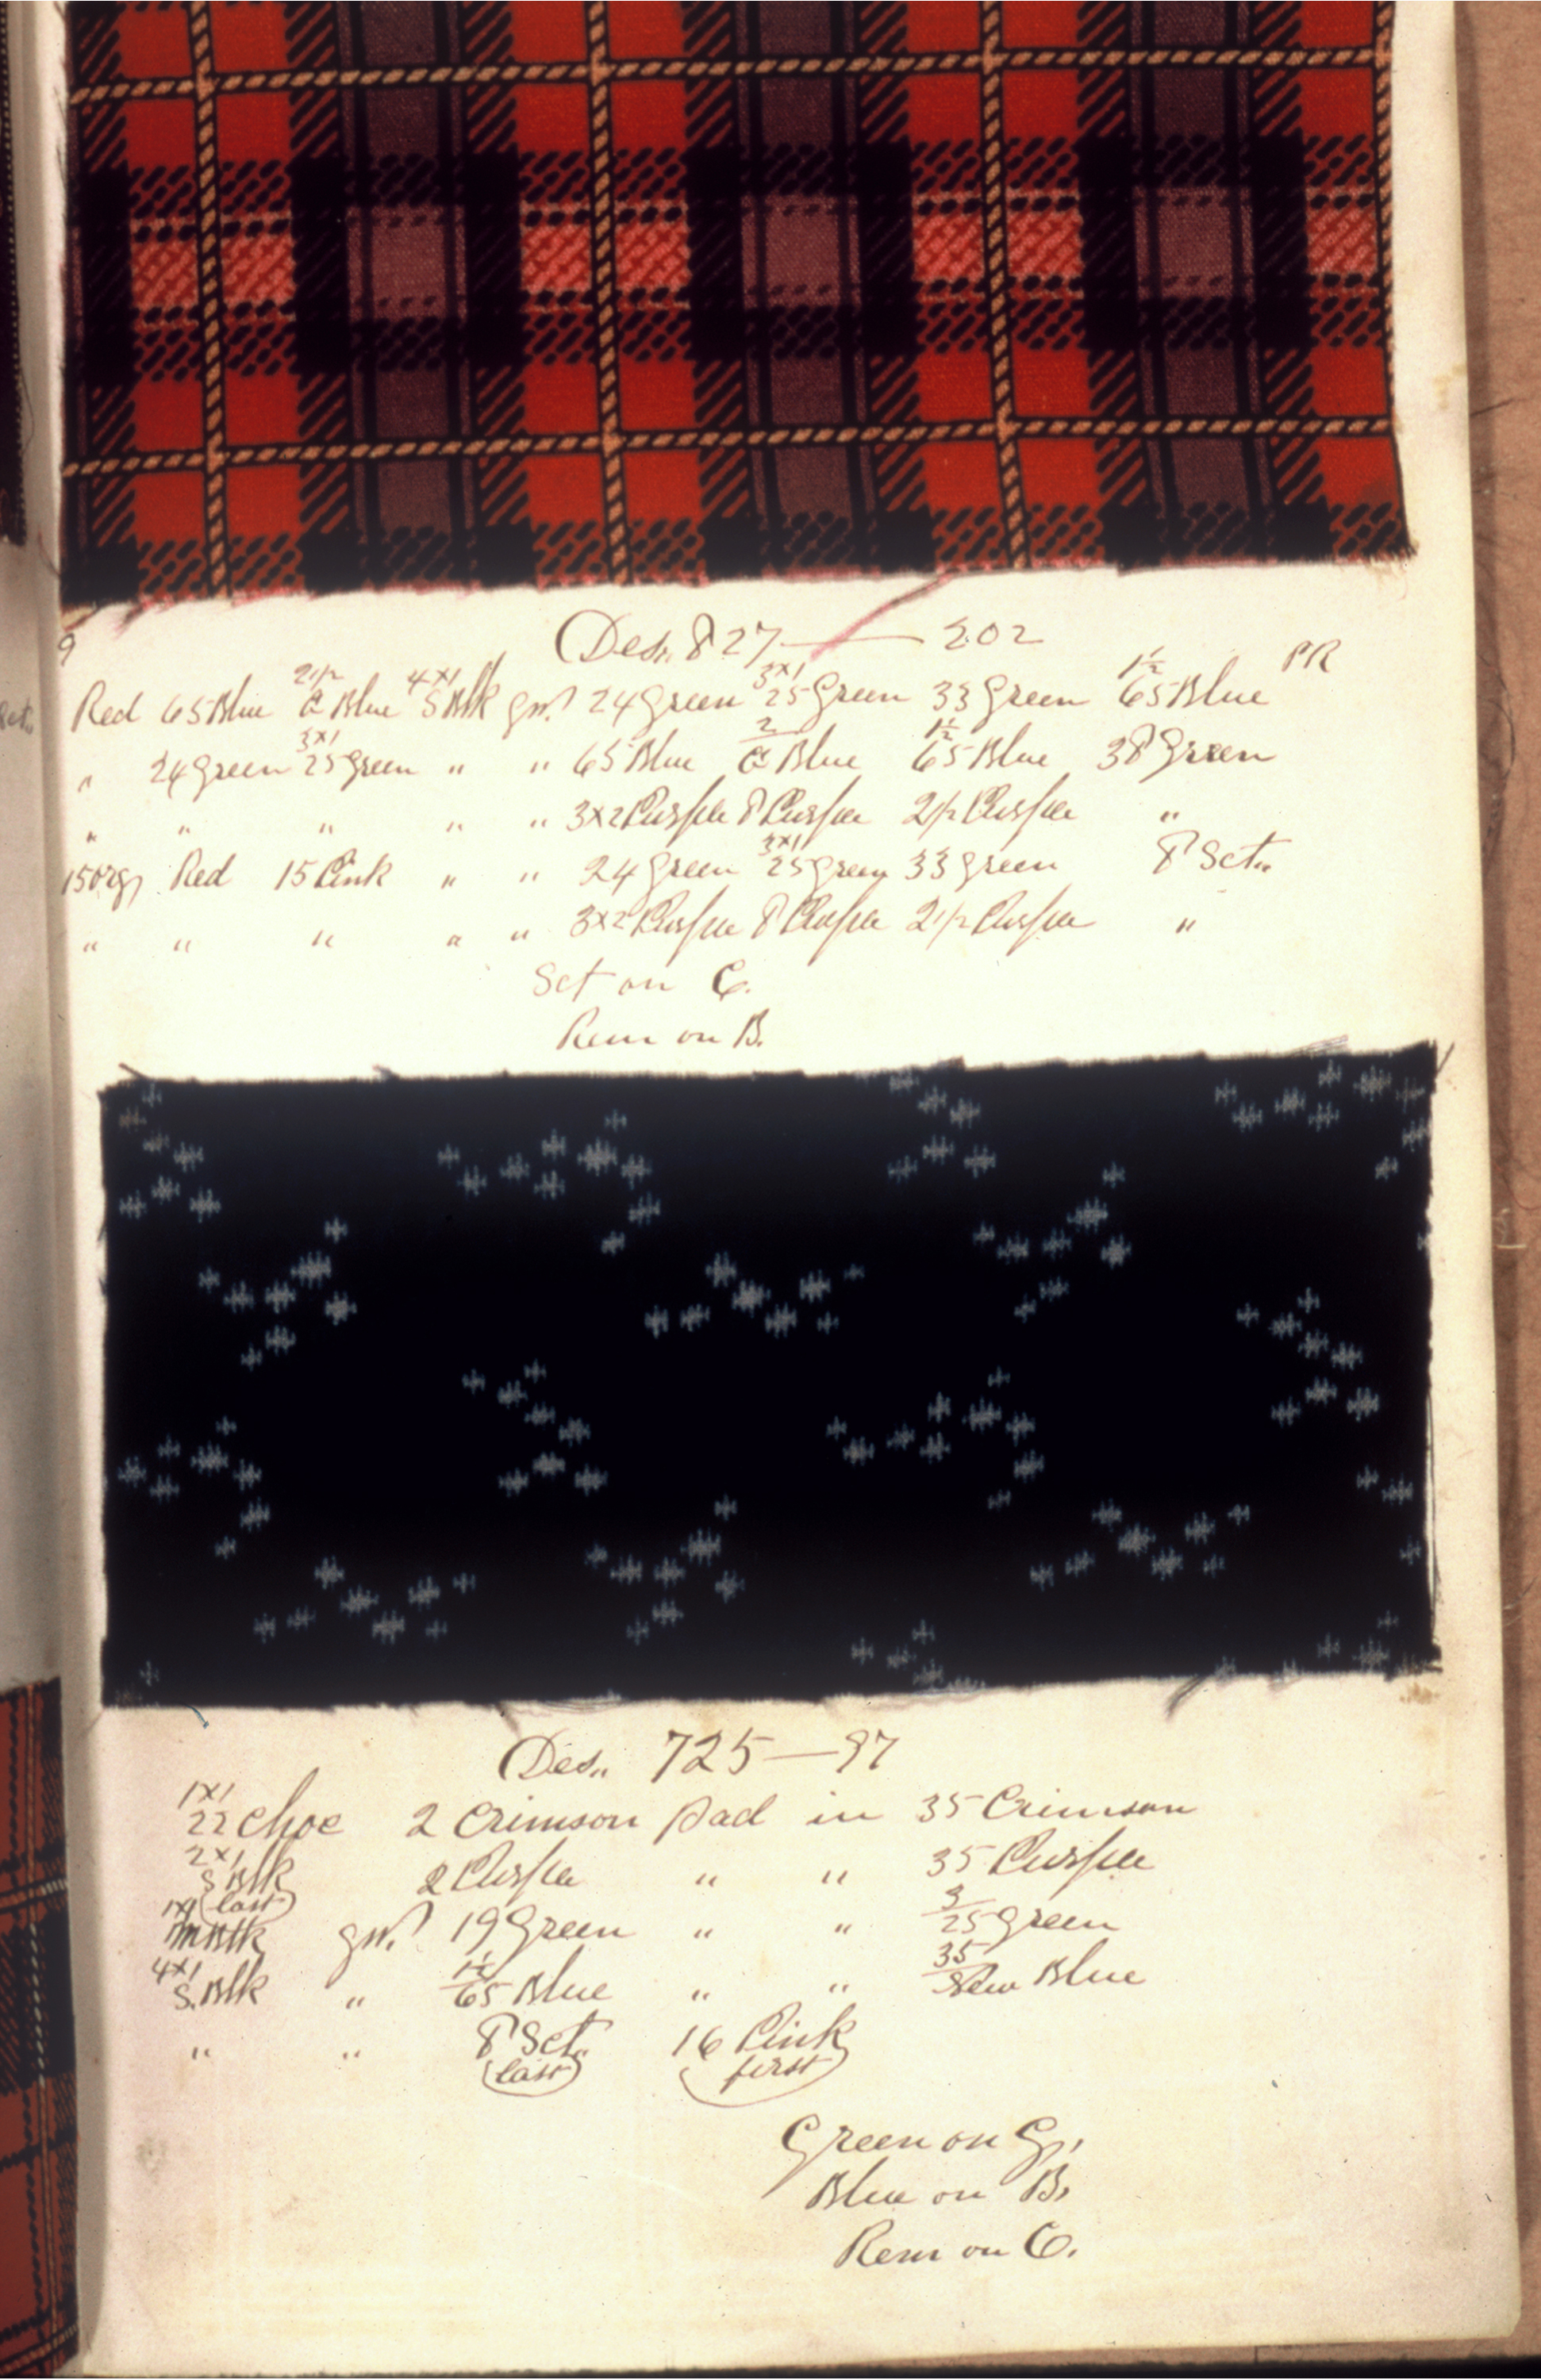 9
Des. 827 — 202
Red 65 Blue 2 1/2 C Blue 4x1 S Blk gw. 24 Green 3x1 25 Green 33 Green 1 1/2 65 Blue PR
" 24 Green 3x1 25 Green " " 65 Blue 2 C Blue 1 1/2 65 Blue 38 Green
" " " " " 3x2 Purple 8 Purple 2 1/2 Purple "
15 Org Red 15 Pink " " 24 Green 3x1 25 Green 33 Green 8 Set..
" " " " " 3x2 Purple 8 Purple 2 1/2 Purple "
Set on C.
Rem on B.
Des.. 725 — 97
1x1 22 Choc 2 Crimson Pad in 35 Crimson
2x1 S Blk (last) 2 Purple " " 35 Purple
1x1 M Blk gw. 19 Green " " 3 25 Green
4x1 S. Blk " 1 1/2 65 Blue " " 35 New Blue
" " 8 Set.. (last) 16 Pink (first)
Green on G,
Blue on B,
Rem on C.